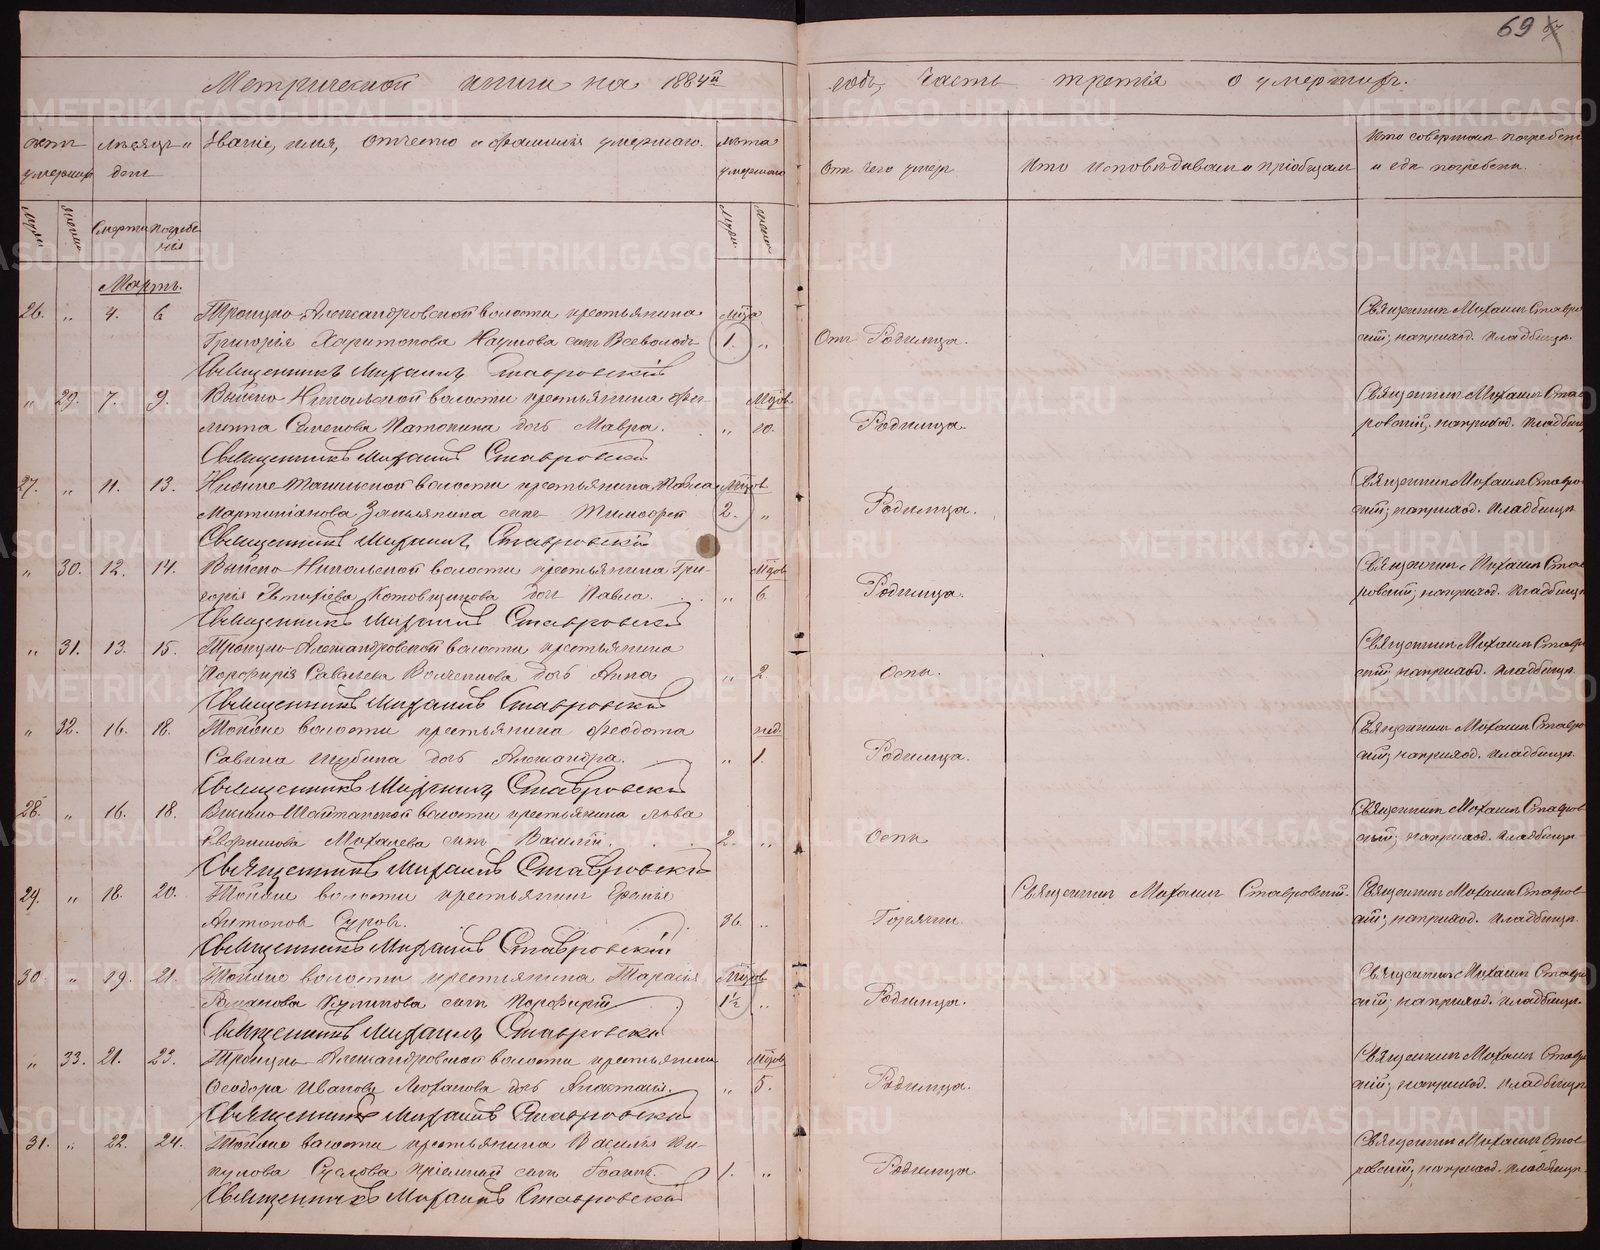 69
Метрической книги на 1884й годъ, часть третія о умершихъ.
Счетъ умершихъ
Мѣсяцъ и день
Званіе, имя, отчество и фамилія умершаго.
Лѣта умершаго
Отъ чего умеръ
Кто исповѣдывалъ и пріобщалъ
Кто совершалъ погребеніе и гдѣ погребенъ.
Мужеск. Женск. Смерти Погребенія
Мартъ.
26. " 4. 6 Троицко-Александровской волости крестьянина
Григорія Харитонова Наумова сынъ Всеволодъ 1. " Отъ Родимца. Священникъ Михаилъ Ставровскій; на приход. кладбищѣ.
Священникъ Михаилъ Ставровскій
" 29. 7. 9. Выйско-Никольской волости крестьянина
Семенова дочь Мавра. " 10. Родимца. Священникъ Михаилъ Ставровскій; на приход. кладбищѣ
Священникъ Михаилъ Ставровскій
27. " 11. 13. Нижне-Тагильской волости крестьянина Павла
сынъ Тимофей 2. " Родимца. Священникъ Михаилъ Ставровскій; на приход. кладбищѣ
Священникъ Михаилъ Ставровскій
" 30. 12. 14. Выйско-Никольской волости крестьянина Гри-
горія дочь Павла. " 6. Родимца. Священникъ Михаилъ Ставровскій; на приход. кладбищѣ
Священникъ Михаилъ Ставровскій
" 31. 13. 15. Троицко-Александровской волости крестьянина
Порфирія Савельева дочь Анна " 2. Оспы. Священникъ Михаилъ Ставровскій; на приход. кладбищѣ.
Священникъ Михаилъ Ставровскій
" 32. 16. 18. Тойже волости крестьянина Феодота нед.
Савина Шубина дочь Александра. " 1. Родимца. Священникъ Михаилъ Ставровскій; на приход. кладбищѣ.
Священникъ Михаилъ Ставровскій
28. " 16. 18. Висимо-Шайтанской волости крестьянина Льва
Михалева сынъ Василій. 2. " Оспы Священникъ Михаилъ Ставровскій; на приход. кладбищѣ
Священникъ Михаилъ Ставровскій
29. " 18. 20. Тойже волости крестьянинъ
Антоновъ Суровъ. 36. " Горячки. Священникъ Михаилъ Ставровскій. Священникъ Михаилъ Ставровскій; на приход. кладбищѣ.
Священникъ Михаилъ Ставровскій
30. " 19. 21. Тойже волости крестьянина Тарасія
Куликова сынъ Порфирій 1½ " Родимца. Священникъ Михаилъ Ставровскій; на приход. кладбищѣ.
Священникъ Михаилъ Ставровскій
" 33. 21. 23. Троицко-Александровской волости крестьянина
Феодора Иванова дочь Анастасія. " 5. Родимца. Священникъ Михаилъ Ставровскій; на приход. кладбищѣ
Священникъ Михаилъ Ставровскій
31. " 22. 24. Тойже волости крестьянина Василья Ви-
кулова пріемный сынъ Іоаннъ. 1. " Родимца Священникъ Михаилъ Ставровскій; на приход. кладбищѣ.
Священникъ Михаилъ Ставровскій
METRIKI.GASO-URAL.RU